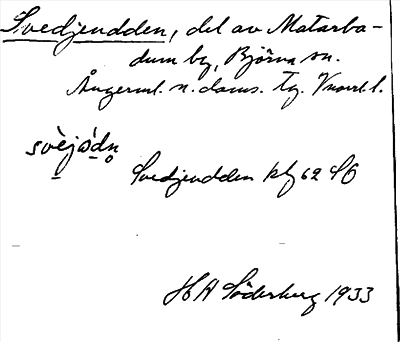 Svedjeudden, del av Matarbo-
dum by, Björna sn.
Ångerml. n. doms. tg. Vnorrl l.
svèjɷ́dn̥
Svedjeudden kbl 62 SO
H A Söderberg 1933